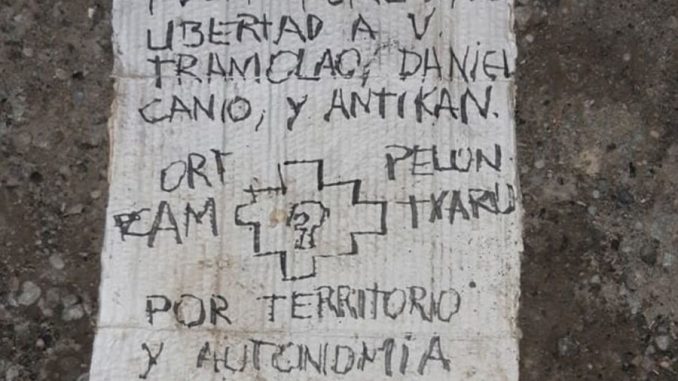 LIBERTAD A V.
TRAMOLAO, DANIEL
CANIO, Y ANTIKAN.
ORT PELON
CAM TXARU
POR TERRITORIO
Y AUTONOMIA